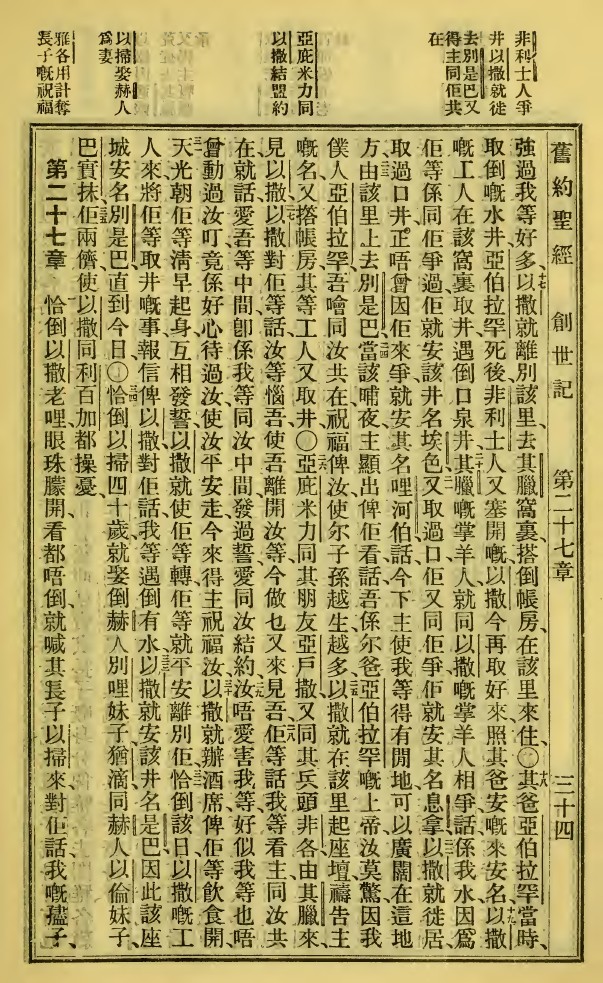 非利士人爭
井以撒就徙
去別是巴又
得主同佢共
在
亞庇米力同
以撒結盟約
以掃娶赫人
爲妻
雅各用計奪
長子嘅祝福
舊約聖經 創世記 第二十七章 三十四
強過我等好多、以撒就離別該里去其臘窩裏、搭倒帳房、在該里來住、〇其爸亞伯拉罕當時、
取倒嘅水井、亞伯拉罕死後、非利士人又塞開嘅、以撒今再取好來、照其爸安嘅來安名、以撒
嘅工人在該窩裏取井、遇倒口泉井、其臘嘅掌羊人、就同以撒嘅掌羊人相爭、話係我水、因爲
佢等係同佢爭過、佢就安該井名埃色、又取過口、佢又同佢爭、佢就安其名息拿、以撒就徙居、
取過口井、正唔曾因佢來爭、就安其名哩河伯、話今下主使我等得有閒地、可以廣闊在這地
方、由該里上去別是巴、當該晡夜主顯出俾佢看、話吾係尔爸亞伯拉罕嘅上帝、汝莫驚、因我
僕人亞伯拉罕、吾噲同汝共在、祝福俾汝、使尔子孫越生越多、以撒就在該里起座壇、禱告主
嘅名、又搭帳房、其等工人又取井、〇亞庇米力同其朋友亞戶撒、又同其兵頭非各、由其臘來、
見以撒、以撒對佢等話、汝等惱吾、使吾離開汝等、今做乜又來見吾、佢等話、我等看主同汝共
在、就話、愛吾等中間、卽係我等同汝中間、發過誓、愛同汝結約、汝唔愛害我等、好似我等也唔
曾動過汝叮、竟係好心待過汝、使汝平安走、今來得主祝福汝、以撒就辦酒席俾佢等飲食開、
天光朝佢等淸早起身、互相發誓、以撒就使佢等轉、佢等就平安離別佢、恰倒該日、以撒嘅工
人來、將佢等取井嘅事報信俾以撒、對佢話、我等遇倒有水、以撒就安該井名是巴、因此該座
城安名別是巴、直到今日、〇恰倒以掃四十歲、就娶倒赫人別哩妹子猶滴、同赫人以倫妹子、
巴實抹、佢兩儕使以撒同利百加都操憂、
第二十七章 恰倒以撒老哩、眼珠朦開看都唔倒、就喊其長子以掃來、對佢話、我嘅𡥧子、